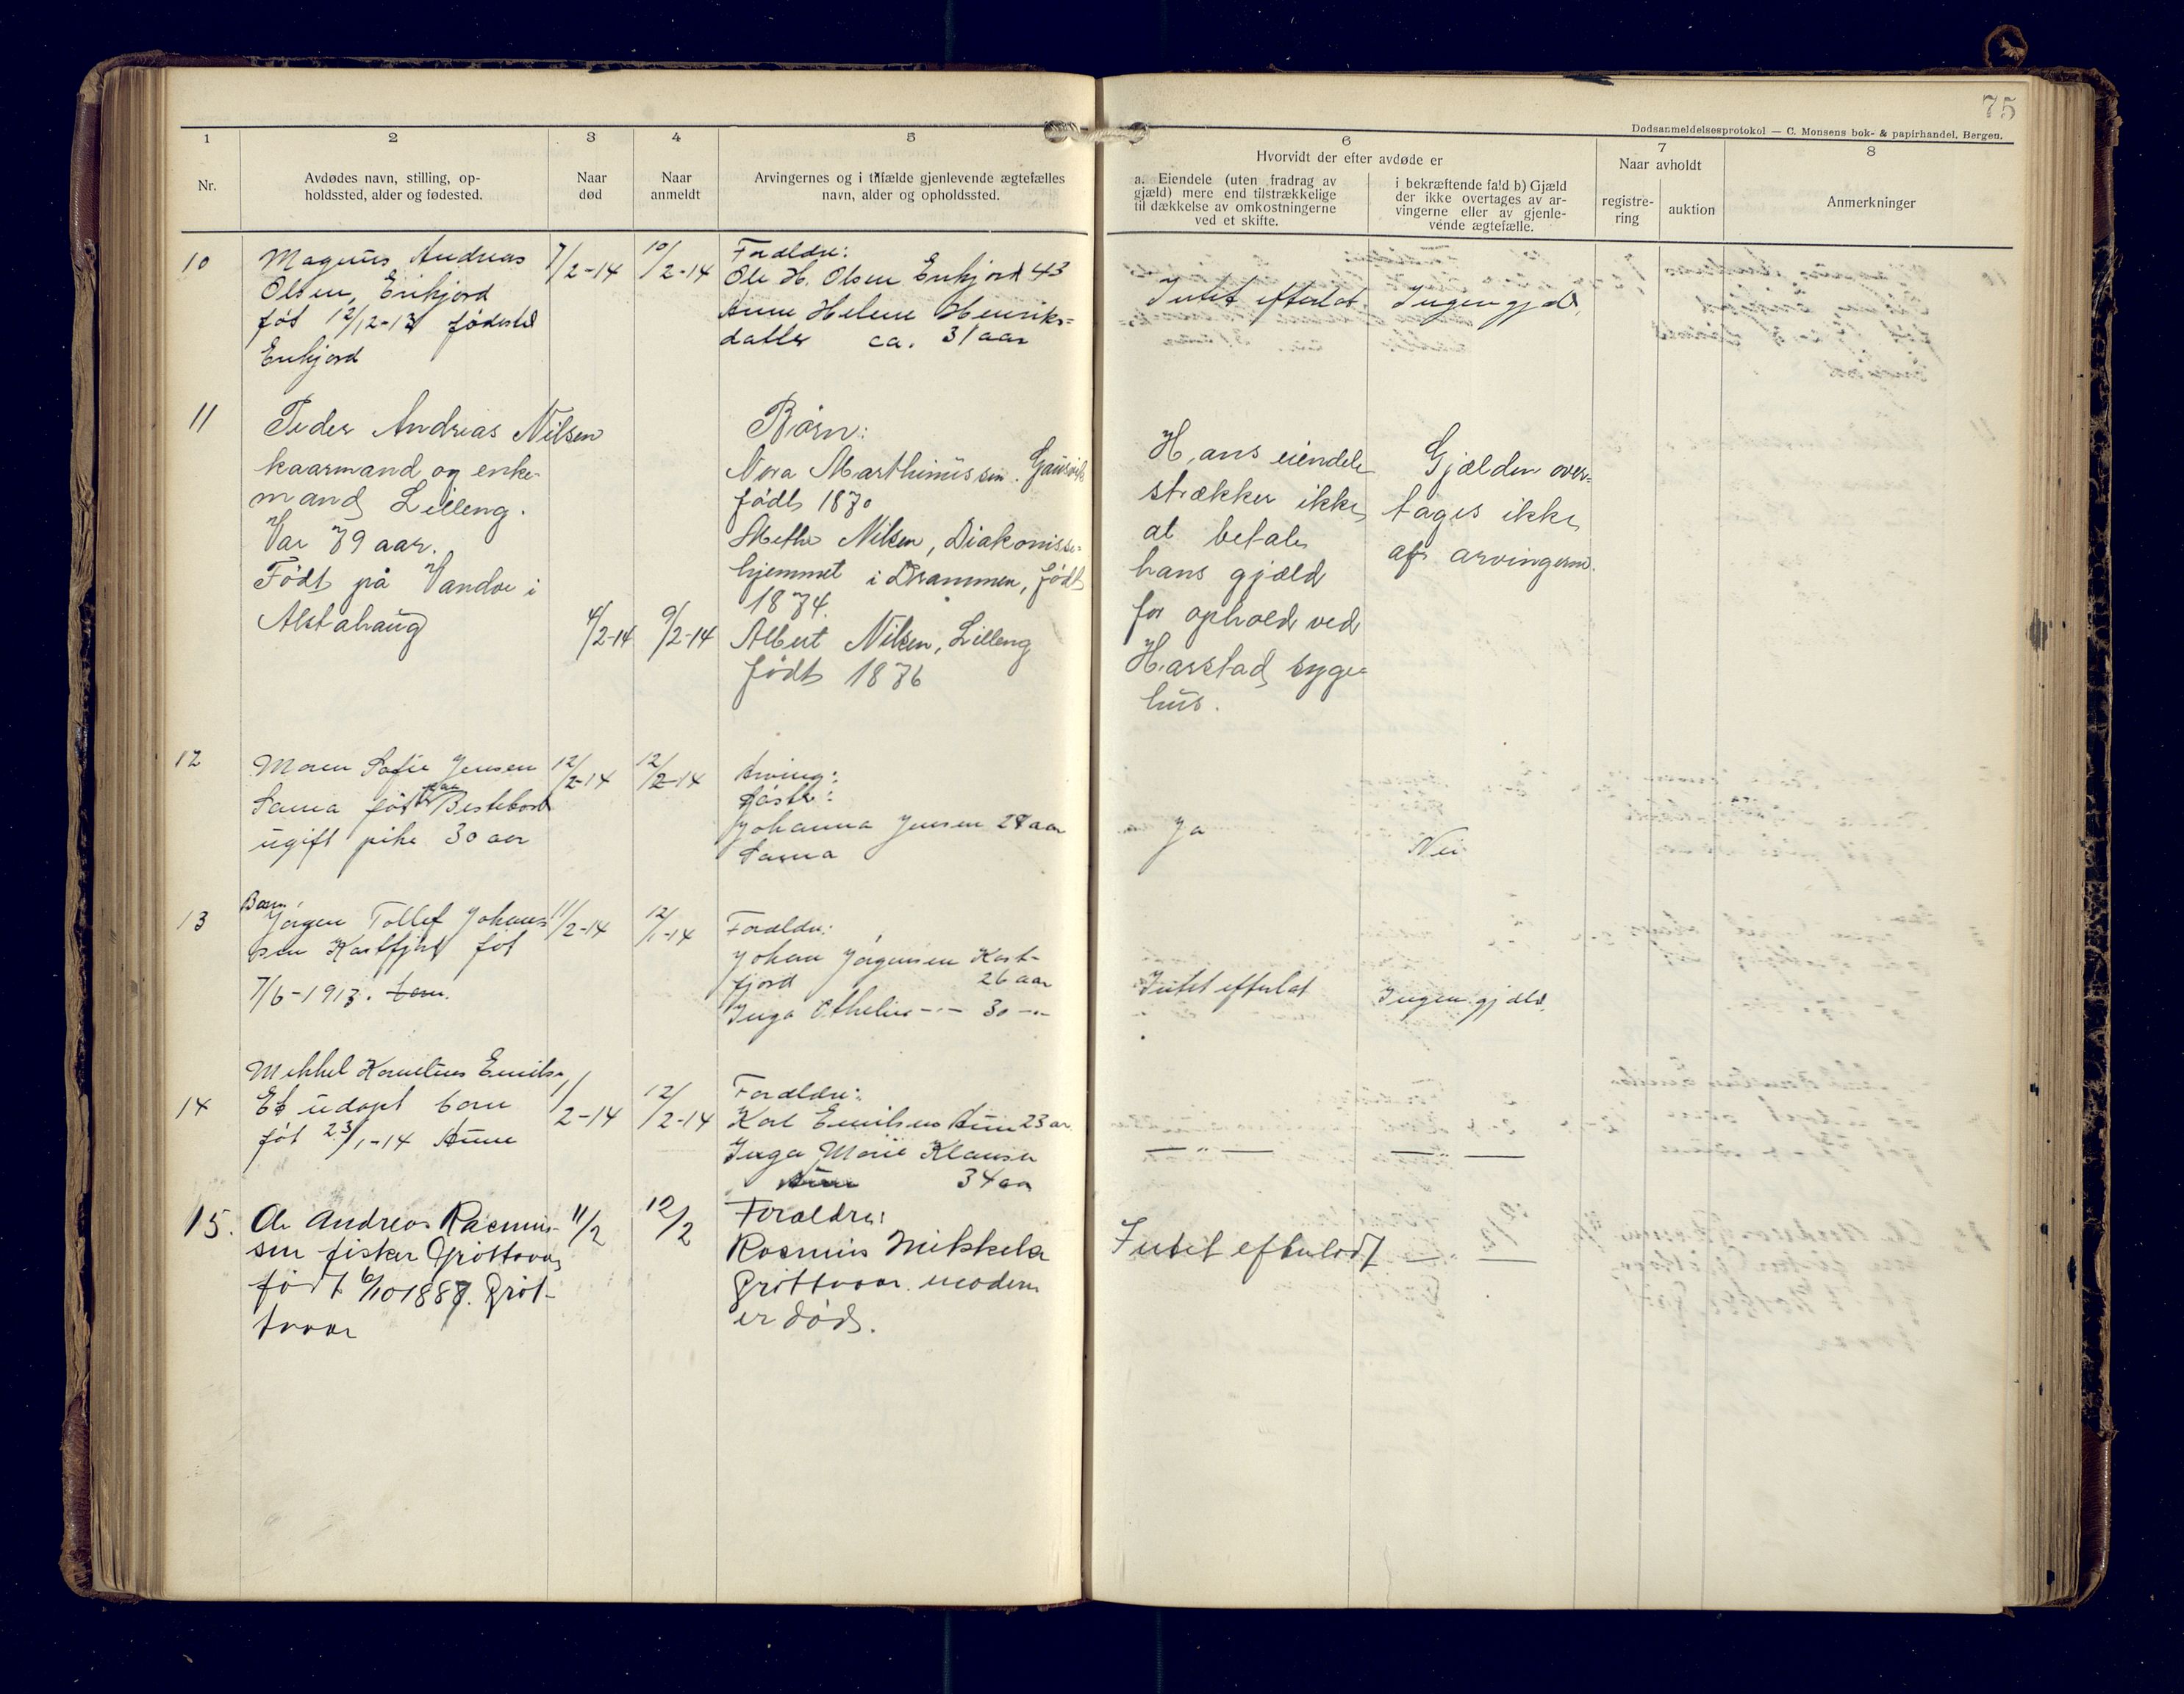 75
Dødsanmeldelsesprotokol — C. Monsens bok- & papirhandel, Bergen.
1
2
3
4
5
6
7
8
Nr.
Avdødes navn, stilling, op-
holdssted, alder og fødested.
Naar
død
Naar
anmeldt
Arvingernes og i tilfælde gjenlevende ægtefælles
navn, alder og opholdssted.
Hvorvidt der efter avdøde er
a. Eiendele (uten fradrag av
gjæld) mere end tilstrækkelige
til dækkelse av omkostningerne
ved et skifte.
i bekræftende fald b) Gjæld
der ikke overtages av ar-
vingerne eller av gjenle-
vende ægtefælle.
Naar avholdt
registre-
ring
auktion
Anmerkninger
10
Magnus Andreas
Olsen, Erikjord
føt 12/12-13 fødested
Erikjord
7/2-14
10/2-14
Forældre:
Ole H. Olsen Erikjord 43
Anne Helene Henriks=
datter ca. 31 aar
Intet efterlat
Ingen gjæld.
11
Peder Andreas Nilsen
kaarmand og enke-
mand Lilleng.
Var 79 aar.
Født på Vandve i
Alstahaug
4/2-14
9/2-14
Børn:
Nora Marthinussen. Gausvik
født 1870
Methe Nilsen, Diakonisse-
hjemmet i Drammen, født
1874.
Albert Nilsen, Lilleng
født 1876
Hans eiendele
strækker ikke
at betale
hans gjæld
for ophold ved
Harstad syge-
hus.
Gjælden over=
tages ikke
af arvingerne.
12
Maren Sofie Jensen
Sama født paa Bestebord
ugift pike 30 aar
12/2-14
12/2-14
Arving:
Søster:
Johanna Jensen 27 aar
Sama
Ja
Nei
13
Barn
Jørgen Tollef Johans
sen Kastfjord føt
7/6-1913. barn.
11/2-14
12/1-14
Forældre:
Johan Jørgensen Kast-
fjord 26 aar
Inga Otheline -"- 30 -"-
Intet efterlat
Ingen gjæld.
Mikkel Kornelius Emils
14
Et udøpt barn
føt 23/1-14 Aune
1/2-14
12/2-14
Forældre:
Karl Emilsen Aune 23 ar
Inga Marie Klausen
Aune 34 aar
— " —
— " —
15.
Ole Andreas Rasmus-
sen fisker Grøttavær
født 6/10 1887. Grøt-
tavær
11/2
12/2
Forældre:
Rasmus Mikkelsen
Grøttavær moderen
er død.
Intet efterladt
— " —